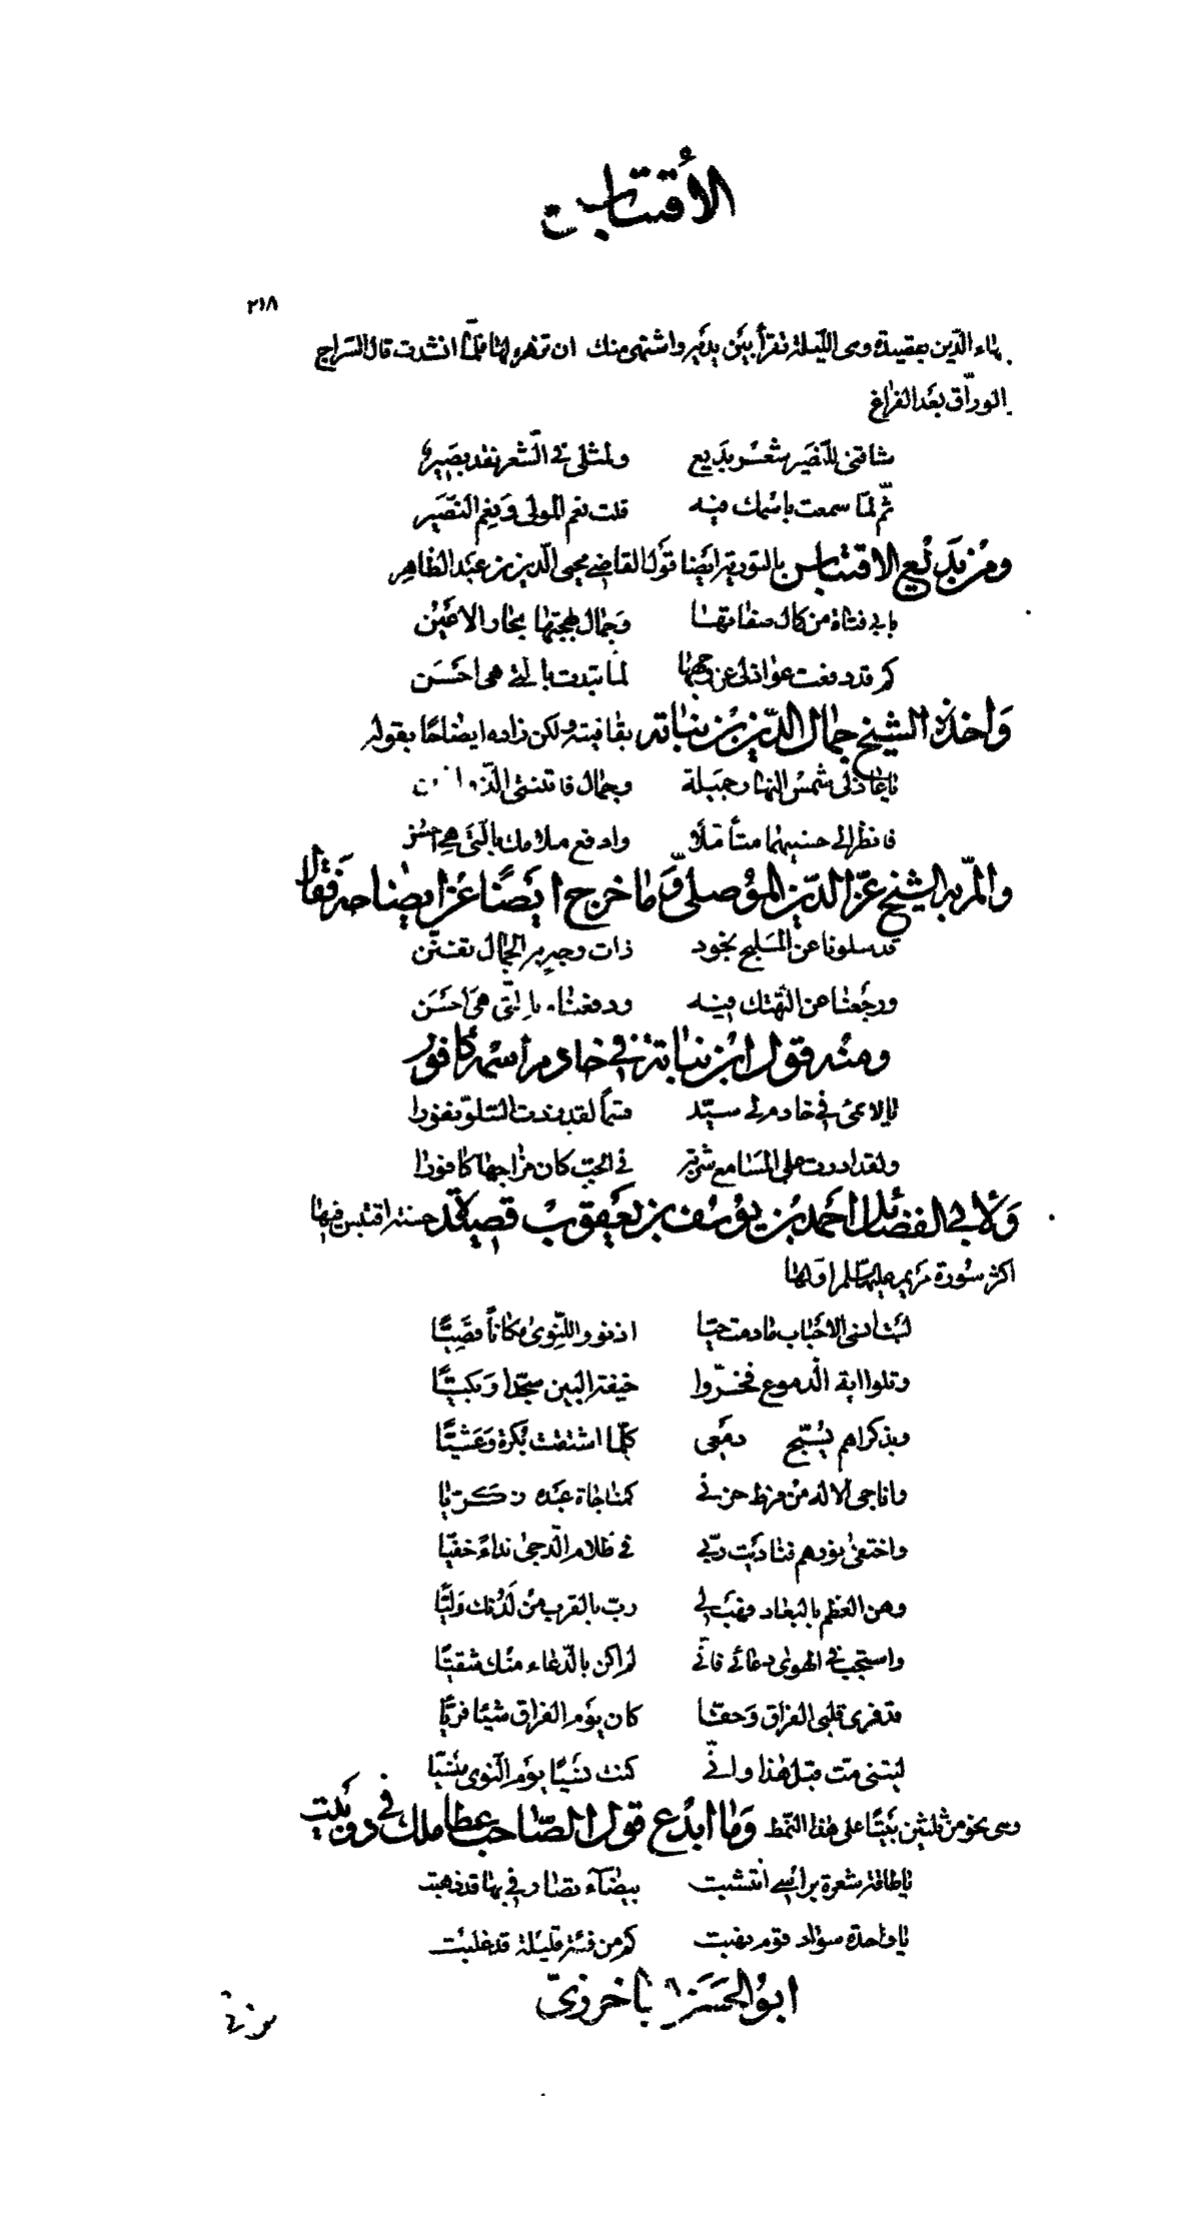 الأقتباس
٢١٨
بهاء الدّين بقصيدة وهى الليلة تقرأ بين يديه واشتهى منك ان تزهره لها فلمّا انشدت قال السّراج
الورّاق بعد الفراغ
شاقنى للنّصير شعر بديع ولمثلى فى الشّعر نقد بصير
ثمّ لمّا سمعت باسمك فيه قلت نعم المولى ونعم النّصير
ومن بديع الاقتباس بالتورية ايضا قول القاضى محيى الدّين بن عبد الظاهر
بابى فتاة من كمال صفاتها وجمال بهجتها بحار الاعين
كم قد دفعت عواذلى عن وجهها لما تبدت بالتى هى احسن
واخذه الشيخ جمال الدّين بن نباته بقافيته ولكن زاده ايضاحا بقوله
يا عاذلى شمس النهار جميلة وجمال فاتنتى الذ
فانظر الى حسنيهما متأملا وادفع ملامك بالتى هى احسن
والمّ به الشيخ عزّ الدّين الموصلى وما خرج ايضًا عن ايضاحه فقال
قد سلونا عن المليح بخود ذات وجه به الجمال تفنّن
ورجعنا عن التهتك فيه ودفعناه بالتّى هى احسن
ومنه قول ابن نباتة فى خادم اسمه كافور
يا لائمى فى خادم لى سيّد قسمًا لقد زدت السّلوّ نفورا
ولقد ادرت على المسامع شربة فى الحبّ كان مزاجها كافورا
ولأبى الفضائل احمد بن يوسف بن يعقوب قصيدة حسنة اقتبس فيها
اكثر سورة مريم عليها السلم اولها
لست انسى الاحباب ما دمت حيّا اذ نووا للنّوى مكاناً قصيّا
وتلوا اية الدموع فخرّوا خيفة البين سجّدا وبكيّا
وبذكراهم يسبّح دمعى كلّما اشتقت بكرة وعشيّا
واناجى الاله من فرط حزنى كمناجاة عبده زكريّا
واختفى نورهم فناديت ربّى فى ظلام الدّجى نداءً خفيّا
وهن العظم بالبعاد فهب لى ربّ بالقرب من لدنك وليّا
واستجب فى الهوى دعائى فانّى لم اكن بالدّعاء منك شقيّا
قد فرى قلبى الفراق وحقّا كان يوم الفراق شيئا فريّا
ليتنى متّ قبل هذا وانّى كنت نسيًا يوم النّوى منسيّا
وهى نحو من ثلثين بيتًا على هذا النّمط وما ابدع قول الصّاحب عطا ملك فى دوبيت
يا طاقة شعرة برأسى انتشبت بيضآء تصارفى بها قد ذهبت
يا واحدة سواد قوم نهبت كم من فئة قليلة قد غلبت
ابو الحسن الباخرزىّ